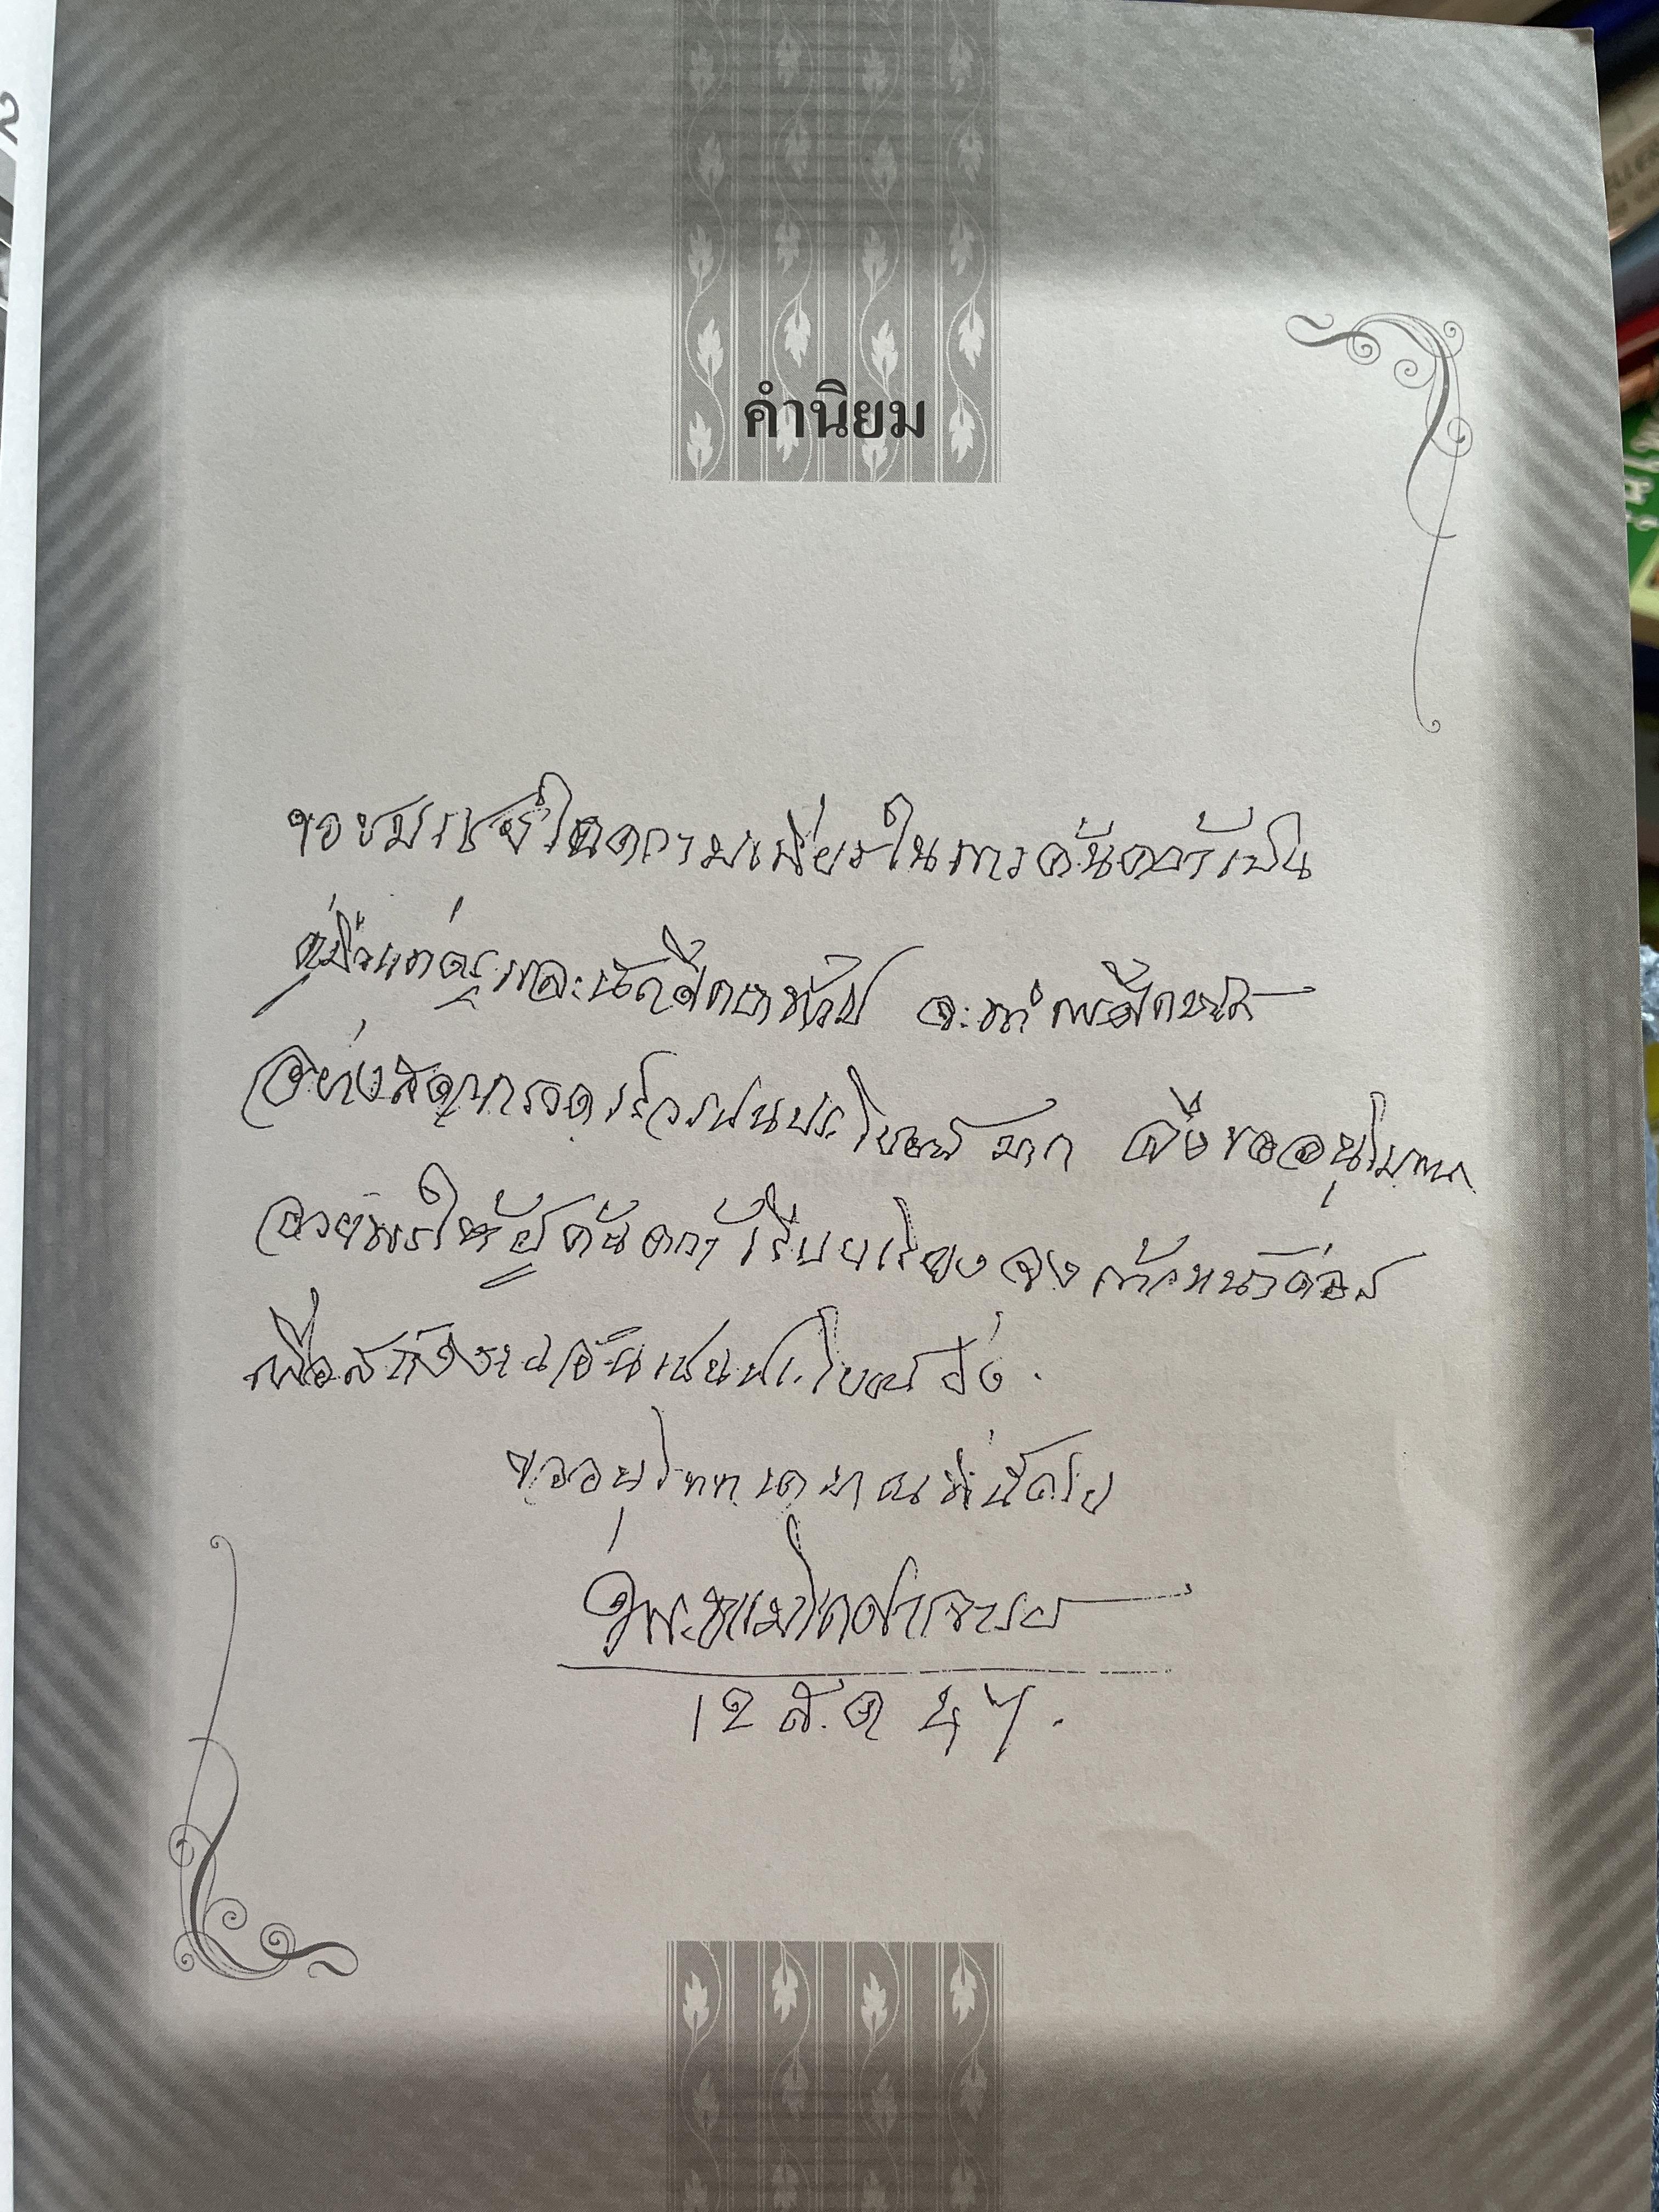 คำนิยม
ขอชมเชยในความเพียรในการค้นคว้าเป็น
คู่มือแก่ครูและนักศึกษาทั่วไป จะทำการศึกษาได้
อย่างสะดวกรวดเร็วเป็นประโยชน์มาก จึงขออนุโมทนา
อวยพรให้ผู้ค้นคว้าเรียบเรียงจงก้าวหน้าต่อไป
เพื่อสร้างงานอันเป็นประโยชน์ยิ่ง.
ขออนุโมทนามา ณ ที่นี้ด้วย
12 ส.ค 47.